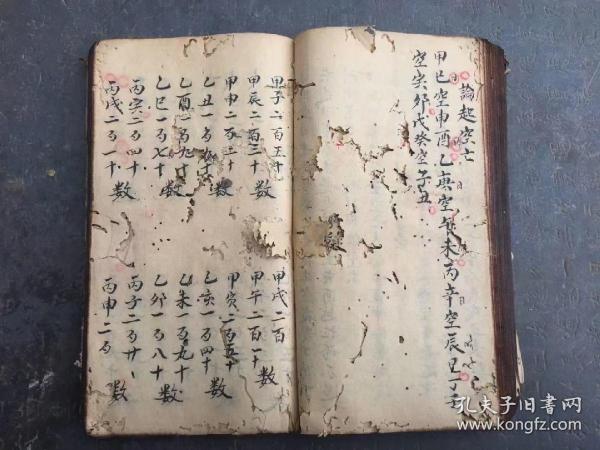 論起空亡
甲己空申酉乙庚空午未丙辛空辰巳丁壬
空寅卯戊癸空子丑
甲子二百五十
甲辰二百三十
甲申二百二十
乙丑一百九十
乙酉一百九十
乙巳一百七十
丙寅二百四十
丙戌二百一十
数
数
甲戌二百
甲午二百一十
甲寅二百五十
乙亥一百四十
乙未一百九十
乙卯一百八十
丙子二百廿
丙申二百
数
数
数
孔夫子旧书网
www.kongfz.com